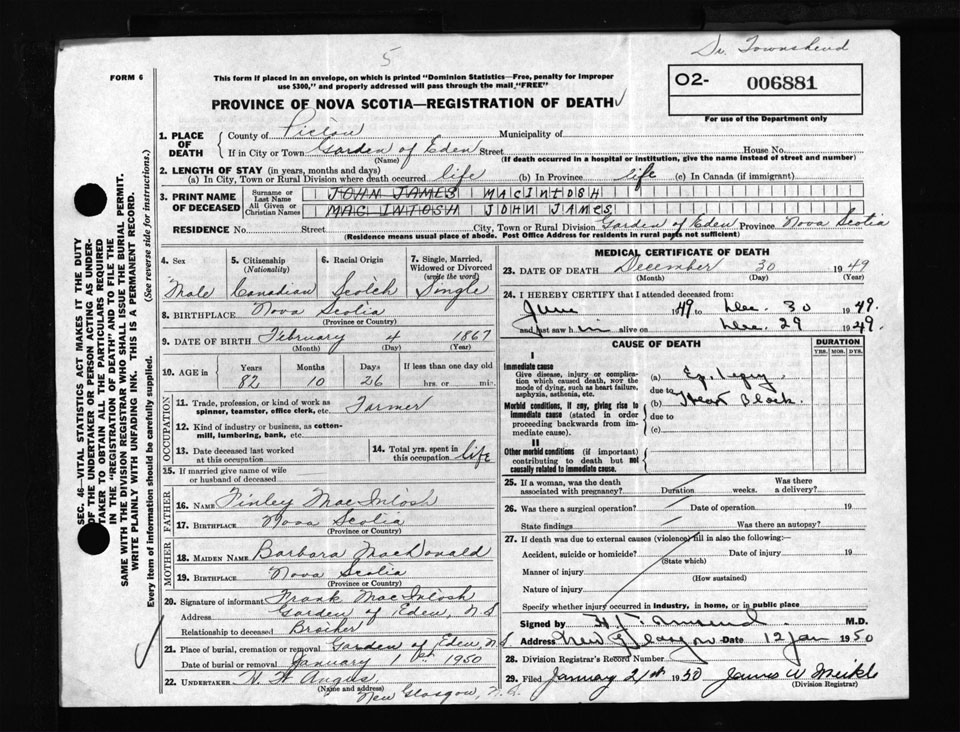 Dr. Townshend
5
FORM 6
This form if placed in an envelope, on which is printed "Dominion Statistics—Free, penalty for improper
use $300," and properly addressed will pass through the mail "FREE"
O2- 006881
For use of the Department only
PROVINCE OF NOVA SCOTIA—REGISTRATION OF DEATH
1. PLACE OF DEATH
County of Pictou Municipality of
If in City or Town Garden of Eden Street House No.
(Name) (If death occurred in a hospital or institution, give the name instead of street and number)
2. LENGTH OF STAY (in years, months and days)
(a) In City, Town or Rural Division where death occurred life (b) In Province life (c) In Canada (if immigrant)
3. PRINT NAME OF DECEASED
Surname or Last Name JOHN JAMES MACINTOSH
All Given or Christian Names MAC INTOSH JOHN JAMES
RESIDENCE No. Street City, Town or Rural Division Garden of Eden Province Nova Scotia
(Residence means usual place of abode. Post Office Address for residents in rural parts not sufficient)
4. Sex Male
5. Citizenship (Nationality) Canadian
6. Racial Origin Scotch
7. Single, Married, Widowed or Divorced (write the word) Single
8. BIRTHPLACE Nova Scotia
(Province or Country)
9. DATE OF BIRTH February 4 1867
(Month) (Day) (Year)
10. AGE in Years Months Days If less than one day old
82 10 26 hrs. or min.
OCCUPATION
11. Trade, profession, or kind of work as spinner, teamster, office clerk, etc. Farmer
12. Kind of industry or business, as cotton-mill, lumbering, bank, etc.
13. Date deceased last worked at this occupation
14. Total yrs. spent in this occupation life
15. If married give name of wife or husband of deceased
FATHER
16. NAME Finley MacIntosh
17. BIRTHPLACE Nova Scotia
(Province or Country)
MOTHER
18. MAIDEN NAME Barbara MacDonald
19. BIRTHPLACE Nova Scotia
(Province or Country)
20. Signature of informant Frank MacIntosh
Address Garden of Eden, N S
Relationship to deceased Brother
21. Place of burial, cremation or removal Garden of Eden, N S
Date of burial or removal January 1st 1950
22. UNDERTAKER W. W Angus,
(Name and address) New Glasgow, N. S.
MEDICAL CERTIFICATE OF DEATH
23. DATE OF DEATH December 30 1949
(Month) (Day) (Year)
24. I HEREBY CERTIFY that I attended deceased from:
June 1949 to Dec. 30 1949.
and last saw him alive on Dec. 29 1949.
CAUSE OF DEATH DURATION
YRS. MOS. DYS.
I
Immediate cause
Give disease, injury or complication which caused death, NOT the mode of dying, such as heart failure, asphyxia, asthenia, etc.
(a) Epilepsy
due to
Morbid conditions, if any, giving rise to immediate cause (stated in order proceeding backwards from immediate cause).
(b) Heart Block.
due to
(c)
II
Other morbid conditions (if important) contributing to death but not causally related to immediate cause.
25. If a woman, was the death associated with pregnancy? Duration weeks. Was there a delivery?
26. Was there a surgical operation? Date of operation 19
State findings Was there an autopsy?
27. If death was due to external causes (violence) fill in also the following:—
Accident, suicide or homicide? Date of injury 19
(State which)
Manner of injury
(How sustained)
Nature of injury
Specify whether injury occurred in industry, in home, or in public place
Signed by M.D.
Address New Glasgow Date 12 Jan 1950
28. Division Registrar's Record Number
29. Filed January 21st 1950 James W Meikle
(Division Registrar)
SEC. 46—VITAL STATISTICS ACT MAKES IT THE DUTY
OF THE UNDERTAKER OR PERSON ACTING AS UNDER-
TAKER TO OBTAIN ALL THE PARTICULARS REQUIRED
IN THE "REGISTRATION OF DEATH" AND TO FILE THE
SAME WITH THE DIVISION REGISTRAR WHO SHALL ISSUE THE BURIAL PERMIT.
WRITE PLAINLY WITH UNFADING INK. THIS IS A PERMANENT RECORD.
Every item of information should be carefully supplied. (See reverse side for instructions.)